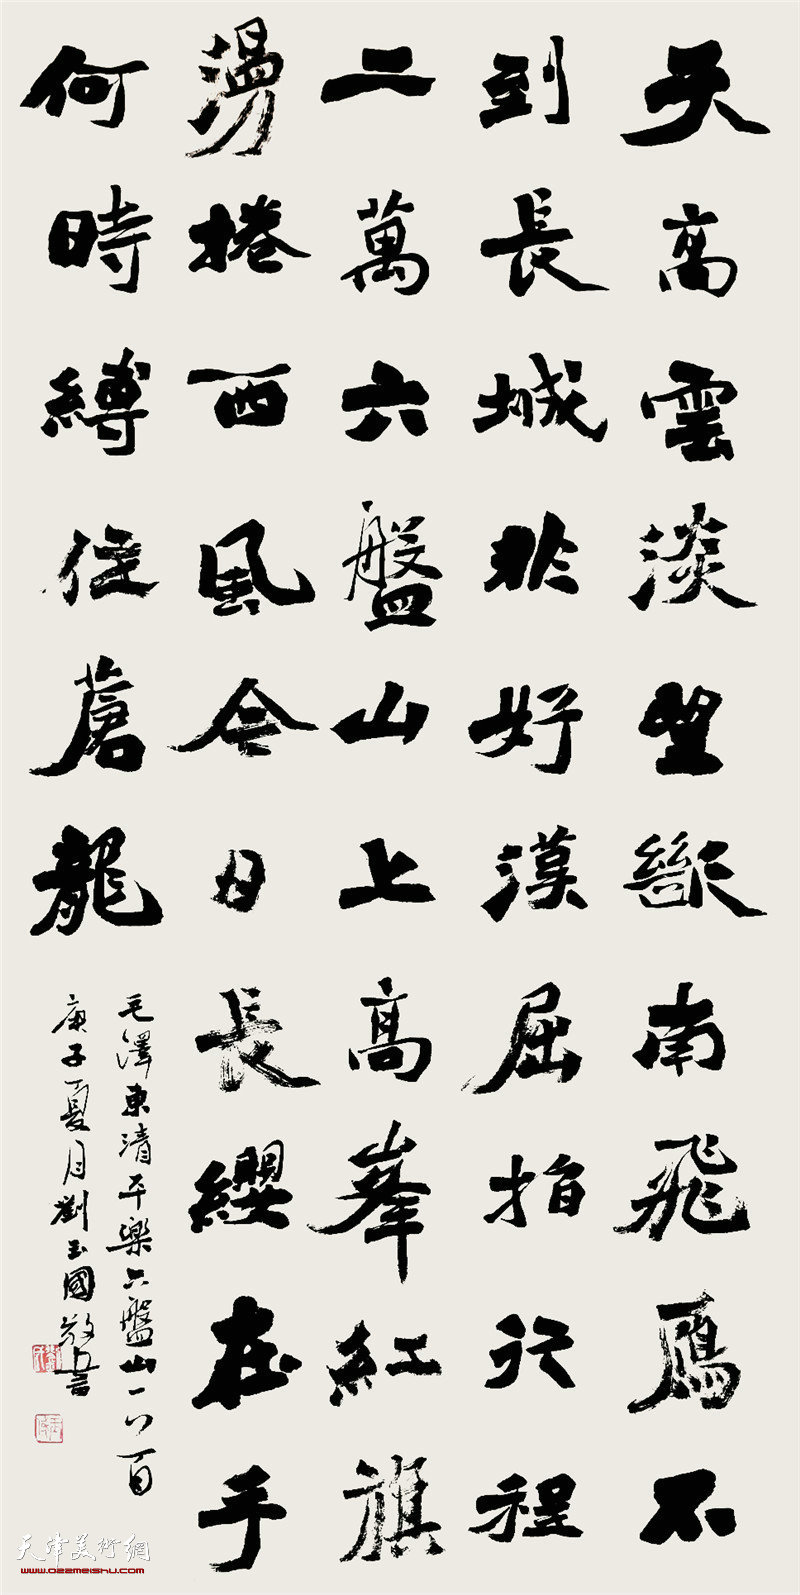 天高雲淡望斷南飛鴈不
到長城非好漢屈指行程
二萬六盤山上高峯紅旗
漫捲西風今日長纓在手
何時縛住蒼龍
毛澤東清平樂六盤山一首
庚子夏月劉玉國敬書
天津美術網
www.022meishu.com